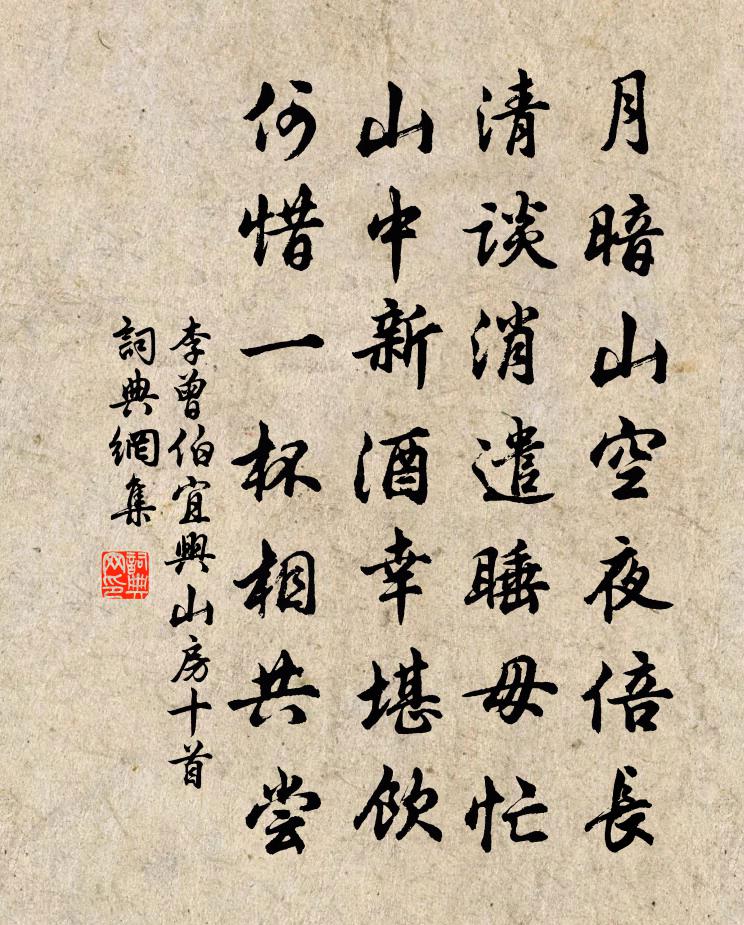 月暗山空夜倍長
清談消遣睡毋忙
山中新酒幸堪飲
何惜一杯相共嘗
李曾伯宜興山房十首
詞典網集
詞典
网印